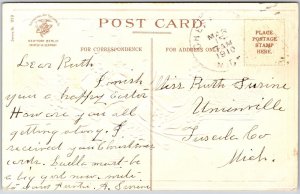 POST CARD.
FOR CORRESPONDENCE
FOR ADDRESS ONLY.
PLACE
POSTAGE
STAMP
HERE.
MAR
1910
Dear Ruth
I wish
you a happy Easter
How are you all
getting along. I
received your Christmas
cards. Luella must be
a big girl now.
Miss Ruth Surine
Unionville
Tuscola Co
Mich.